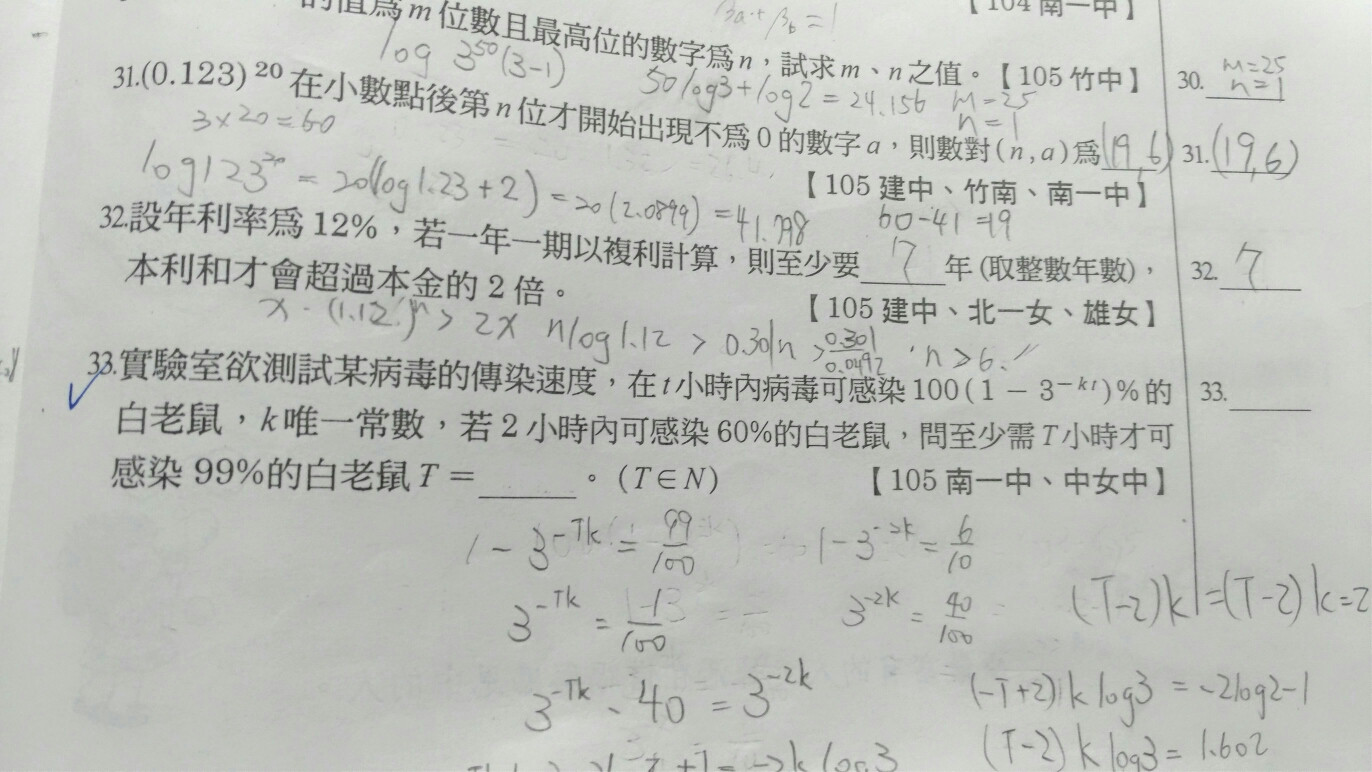 【104 南一中】
的值為 m 位數且最高位的數字為 n，試求 m、n 之值。【105 竹中】
30. m=25 n=1
log 3^50(3-1)
50log3+log2=24.156 m=25 n=1
31.(0.123)^20 在小數點後第 n 位才開始出現不為 0 的數字 a，則數對(n,a)為(19,6)
31.(19,6)
3×20=60
【105 建中、竹南、南一中】
log123^20=20(log1.23+2)=20(2.0899)=41.798
60-41=19
32.設年利率為 12%，若一年一期以複利計算，則至少要 7 年(取整數年數)，
32. 7
本利和才會超過本金的 2 倍。
【105 建中、北一女、雄女】
x·(1.12)^n > 2x nlog1.12 > 0.301 n > 0.301/0.0492 n>6.
33.實驗室欲測試某病毒的傳染速度，在 t 小時內病毒可感染 100(1－3^-kt)%的
33.
白老鼠，k 唯一常數，若 2 小時內可感染 60%的白老鼠，問至少需 T 小時才可
感染 99%的白老鼠 T＝ 。(T∈N)
【105 南一中、中女中】
1-3^-Tk=99/100
1-3^-2k=6/10
3^-Tk=1/100
3^-2k=40/100
(T-2)k
=(T-2)k=2
3^-Tk·40=3^-2k
(-T+2)klog3=-2log2-1
(T-2)klog3=1.602